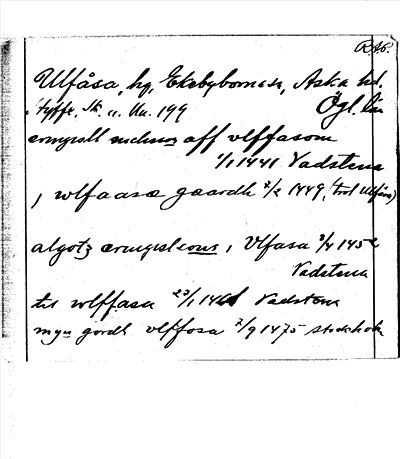 RAp.
Ulfåsa, hg, Ekebyborna sn, Aska hd.
Styffe, Sk. u. Un. 199 Ögl. län
ærngisall nielssøn aff vlffasom
1/1 1441 Vadstena
j wlfaasæ gaardh 2/2 1449, (trol Ulfåsa)
algotz ærngisleson, i Vlfasa 3/4 145
Vadstena
til wlffasa 23/1 1461 Vadstena
myn gordh vlffosa 7/9 1475 Stockholm